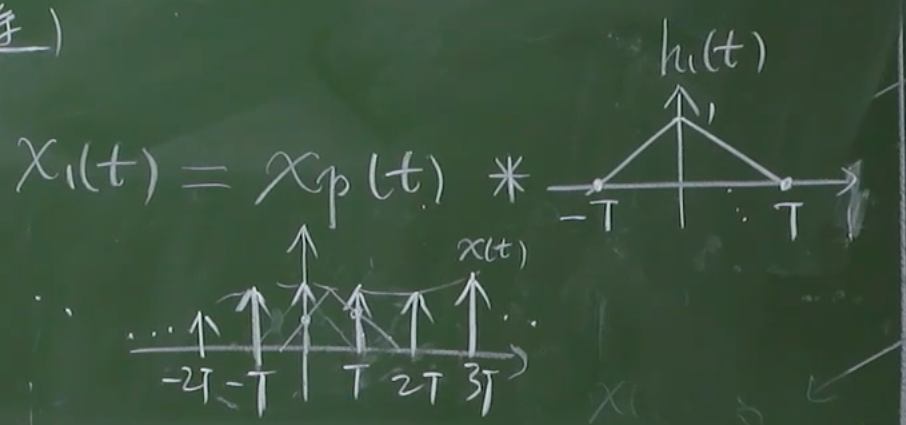 h₁(t)
1
x₁(t) = xₚ(t) *
-T T
x(t)
... ...
-2T -T T 2T 3T